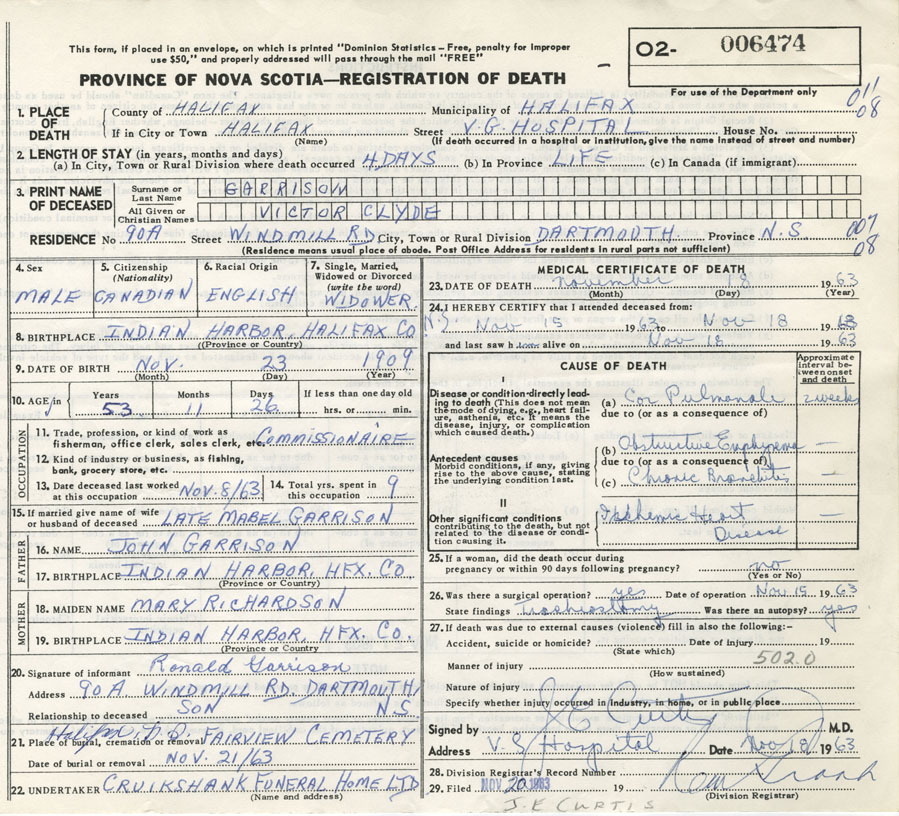 This form, if placed in an envelope, on which is printed "Dominion Statistics – Free, penalty for improper
use $50," and properly addressed will pass through the mail "FREE"
O2- 006474
PROVINCE OF NOVA SCOTIA—REGISTRATION OF DEATH
For use of the Department only
011
08
1. PLACE OF DEATH County of HALIFAX Municipality of HALIFAX
If in City or Town HALIFAX Street V.G. HOSPITAL House No.
(Name) (If death occurred in a hospital or institution, give the name instead of street and number)
2. LENGTH OF STAY (in years, months and days)
(a) In City, Town or Rural Division where death occurred 4 DAYS (b) In Province LIFE (c) In Canada (if immigrant)
3. PRINT NAME OF DECEASED Surname or Last Name GARRISON
All Given or Christian Names VICTOR CLYDE
RESIDENCE No 90A Street WINDMILL RD City, Town or Rural Division DARTMOUTH Province N.S. 007
08
(Residence means usual place of abode. Post Office Address for residents in rural parts not sufficient)
4. Sex MALE
5. Citizenship (Nationality) CANADIAN
6. Racial Origin ENGLISH
7. Single, Married, Widowed or Divorced (write the word) WIDOWER
8. BIRTHPLACE INDIAN HARBOR, HALIFAX CO N.S.
(Province or Country)
9. DATE OF BIRTH NOV. 23 1909
(Month) (Day) (Year)
10. AGE in Years 53 Months 11 Days 26 If less than one day old hrs. or min.
OCCUPATION
11. Trade, profession, or kind of work as fisherman, office clerk, sales clerk, etc. COMMISSIONAIRE
12. Kind of industry or business, as fishing, bank, grocery store, etc.
13. Date deceased last worked at this occupation NOV. 8/63 14. Total yrs. spent in this occupation 9
15. If married give name of wife or husband of deceased LATE MABEL GARRISON
FATHER
16. NAME JOHN GARRISON
17. BIRTHPLACE INDIAN HARBOR, HFX. CO.
(Province or Country)
MOTHER
18. MAIDEN NAME MARY RICHARDSON
19. BIRTHPLACE INDIAN HARBOR, HFX. CO.
(Province or Country
20. Signature of informant Ronald Garrison
Address 90A WINDMILL RD. DARTMOUTH,
Relationship to deceased SON N.S.
21. Place of burial, cremation or removal Halifax, FAIRVIEW CEMETERY
Date of burial or removal NOV. 21/63
22. UNDERTAKER CRUIKSHANK FUNERAL HOME LTD
(Name and address)
MEDICAL CERTIFICATE OF DEATH
23. DATE OF DEATH November 18 1963
(Month) (Day) (Year)
24. I HEREBY CERTIFY that I attended deceased from:
Nov 15 1963 to Nov 18 1963
and last saw h alive on Nov 18 1963
CAUSE OF DEATH
Approximate interval between onset and death
I
Disease or condition directly leading to death (This does not mean the mode of dying, e.g., heart failure, asthenia, etc. It means the disease, injury, or complication which caused death.)
(a) Cor Pulmonale 2 weeks
due to (or as a consequence of)
Antecedent causes
Morbid conditions, if any, giving rise to the above cause, stating the underlying condition last.
(b) Obstructive Emphysema —
due to (or as a consequence of)
(c) Chronic Bronchitis —
II
Other significant conditions contributing to the death, but not related to the disease or condition causing it.
Ischemic Heart Disease —
25. If a woman, did the death occur during pregnancy or within 90 days following pregnancy? no
(Yes or No)
26. Was there a surgical operation? yes Date of operation Nov 15 1963
State findings Tracheostomy Was there an autopsy? yes
27. If death was due to external causes (violence) fill in also the following:—
Accident, suicide or homicide? Date of injury 19
(State which)
Manner of injury 502.0
(How sustained)
Nature of injury
Specify whether injury occurred in industry, in home, or in public place
Signed by J E Curtis M.D.
Address V.G Hospital Date Nov 18 1963
28. Division Registrar's Record Number
29. Filed NOV 20 1963 19
(Division Registrar)
J. E CURTIS